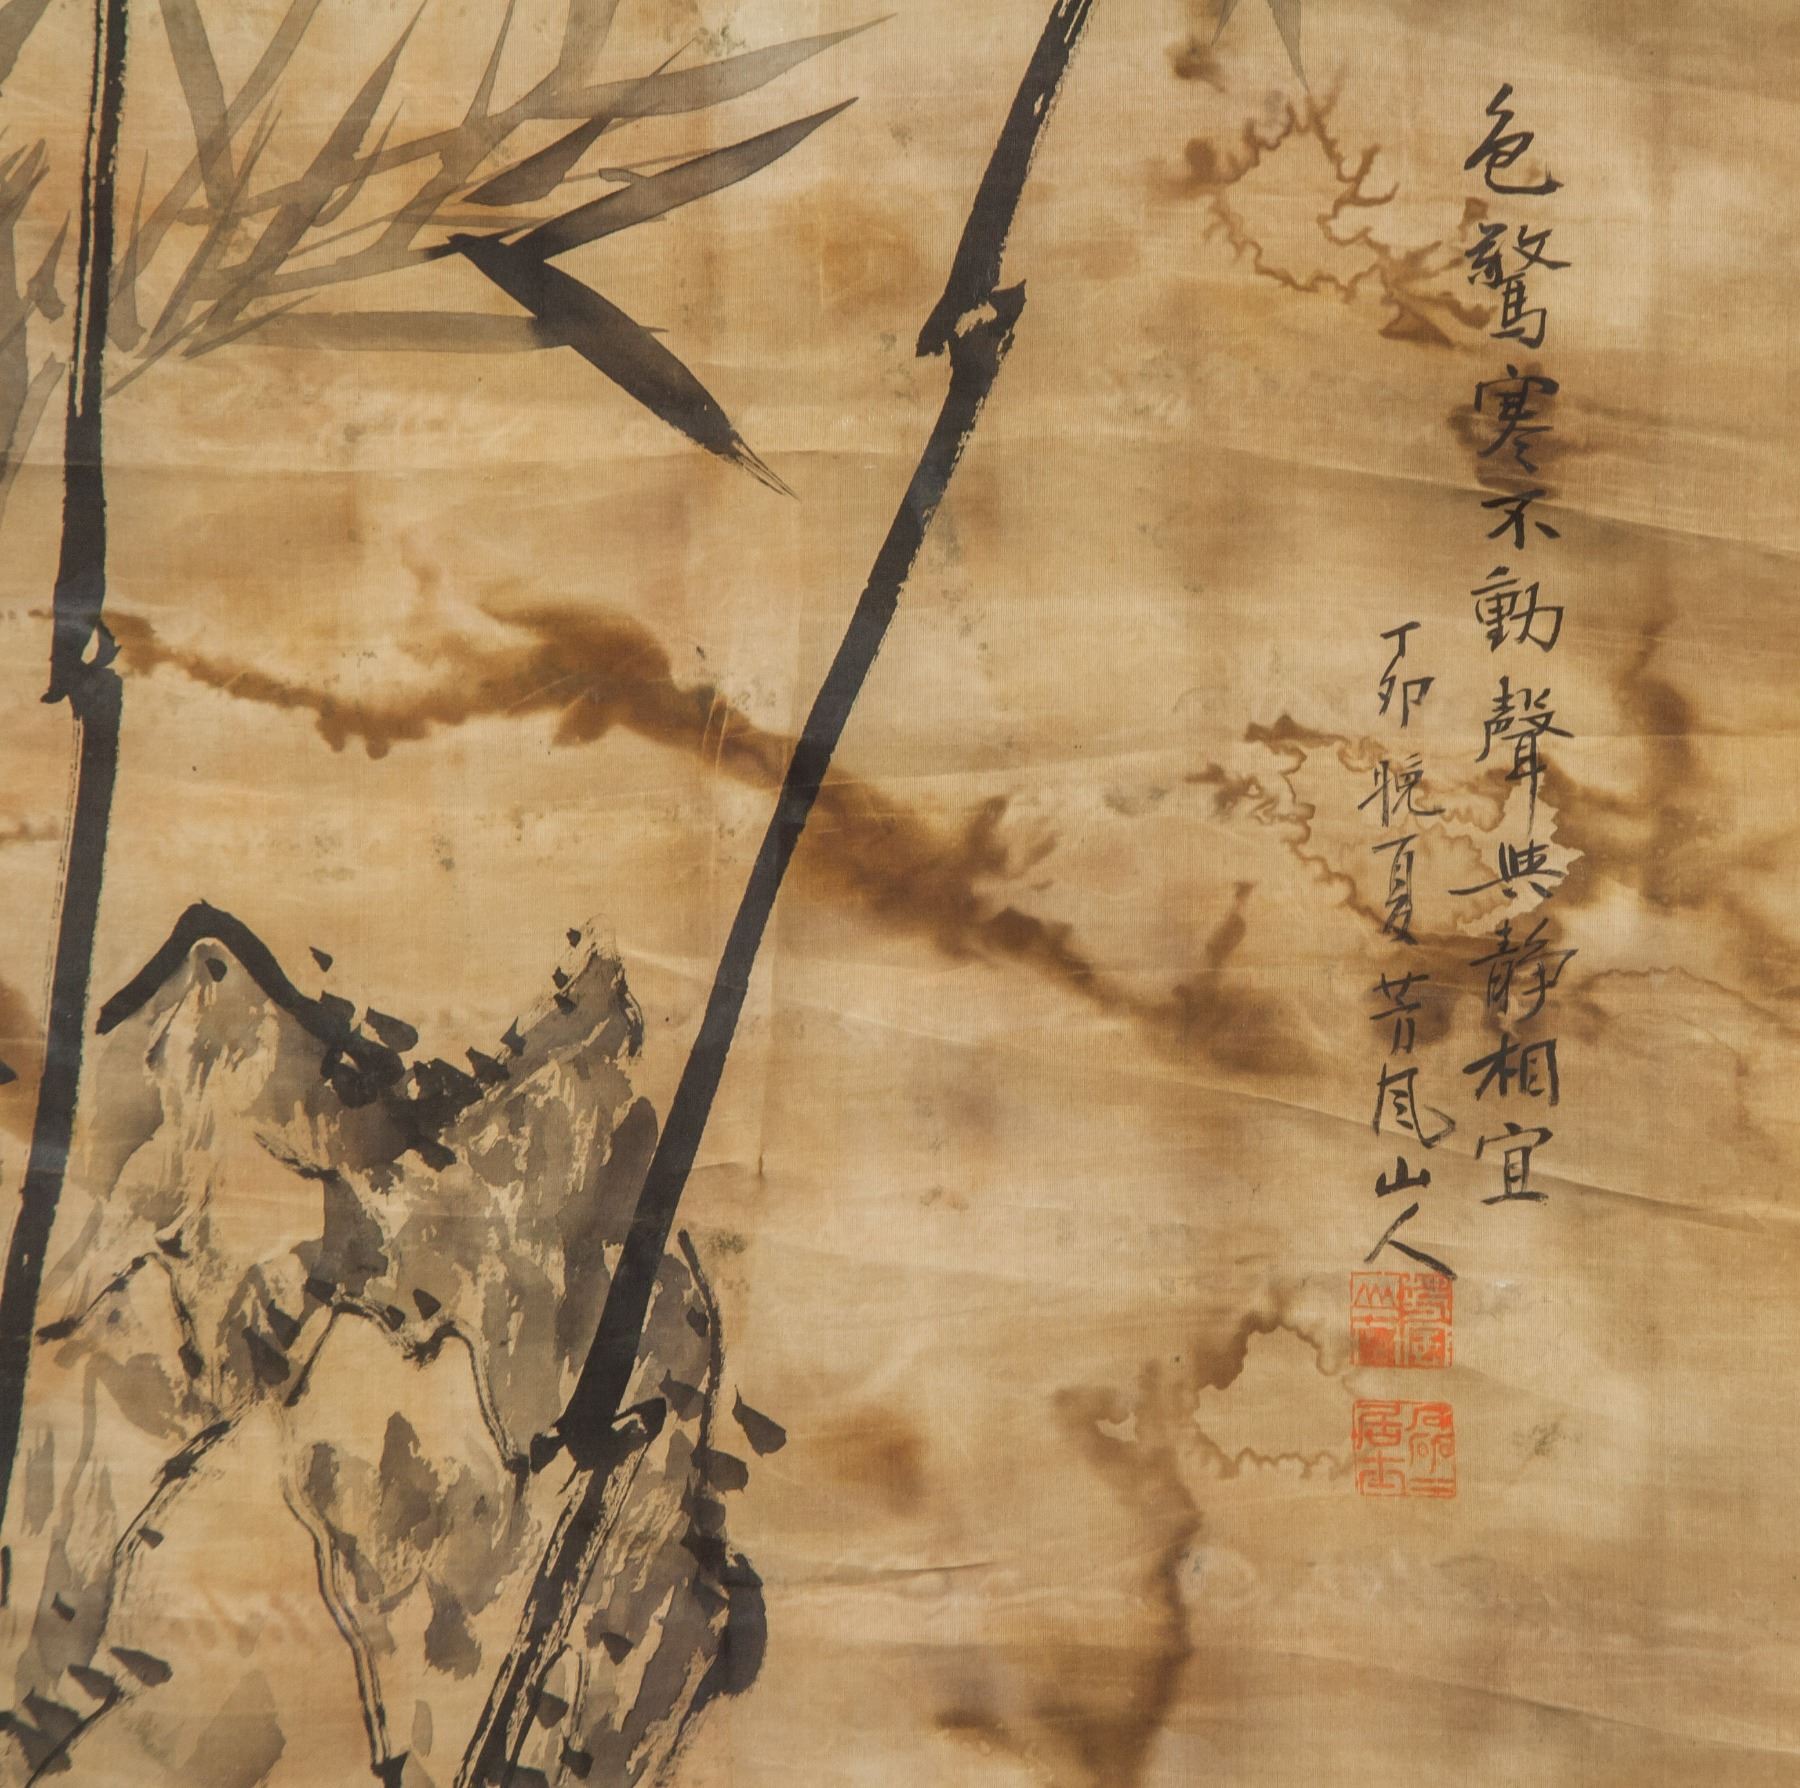 色驚寒不動聲與靜相宜
丁卯晚夏苦風山人
居士